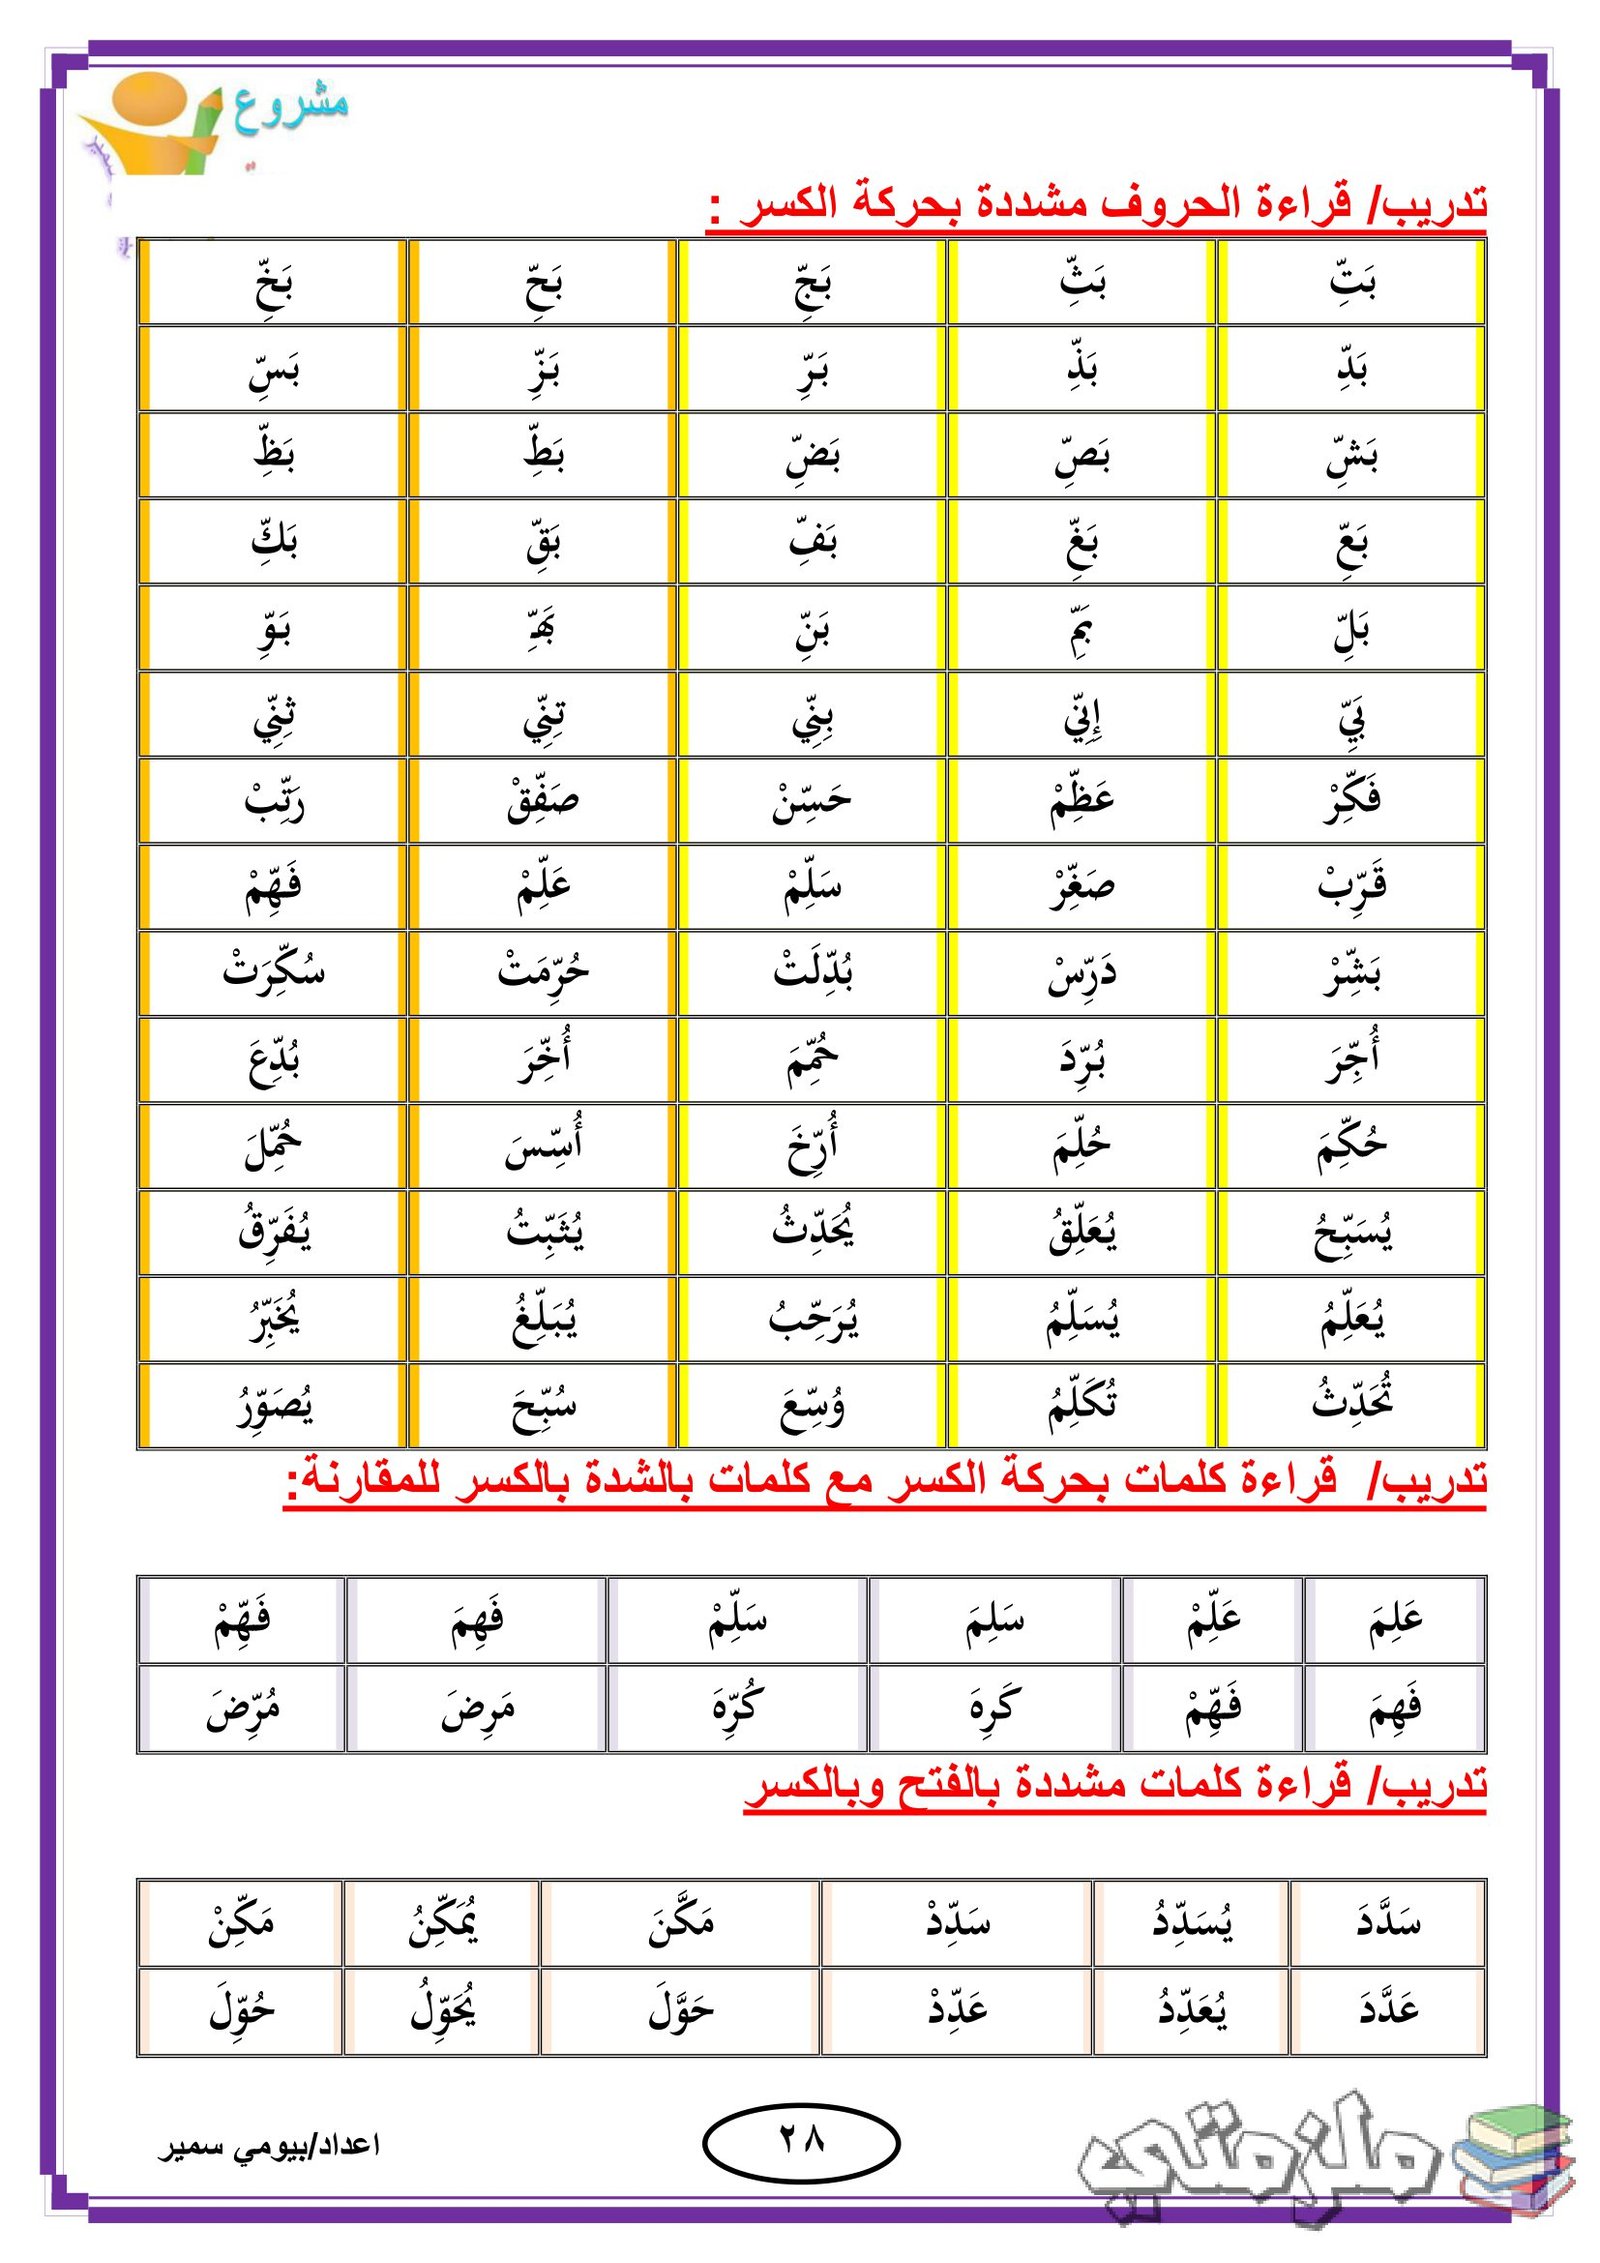 مشروع
تدريب/ قراءة الحروف مشددة بحركة الكسر :
بَتِّ بَثِّ بَجِّ بَحِّ بَخِّ
بَدِّ بَذِّ بَرِّ بَزِّ بَسِّ
بَشِّ بَصِّ بَضِّ بَطِّ بَظِّ
بَعِّ بَغِّ بَفِّ بَقِّ بَكِّ
بَلِّ بَمِّ بَنِّ بَهِّـ بَوِّ
بَيِّ إِنِّي بِنِّي تِنِّي ثِنِّي
فَكِّرْ عَظِّمْ حَسِّنْ صَفِّقْ رَتِّبْ
قَرِّبْ صَغِّرْ سَلِّمْ عَلِّمْ فَهِّمْ
بَشِّرْ دَرِّسْ بُدِّلَتْ حُرِّمَتْ سُكِّرَتْ
أُجِّرَ بُرِّدَ حُمِّمَ أُخِّرَ بُدِّعَ
حُكِّمَ حُلِّمَ أُرِّخَ أُسِّسَ حُمِّلَ
يُسَبِّحُ يُعَلِّقُ يُحَدِّثُ يُثَبِّتُ يُفَرِّقُ
يُعَلِّمُ يُسَلِّمُ يُرَحِّبُ يُبَلِّغُ يُخَبِّرُ
تُحَدِّثُ تُكَلِّمُ وُسِّعَ سُبِّحَ يُصَوِّرُ
تدريب/ قراءة كلمات بحركة الكسر مع كلمات بالشدة بالكسر للمقارنة:
عَلِمَ عَلِّمْ سَلِمَ سَلِّمْ فَهِمَ فَهِّمْ
فَهِمَ فَهِّمْ كَرِهَ كُرِّهَ مَرِضَ مُرِّضَ
تدريب/ قراءة كلمات مشددة بالفتح وبالكسر
سَدَّدَ يُسَدِّدُ سَدِّدْ مَكَّنَ يُمَكِّنُ مَكِّنْ
عَدَّدَ يُعَدِّدُ عَدِّدْ حَوَّلَ يُحَوِّلُ حُوِّلَ
اعداد/بيومي سمير
٢٨
ملزمتي